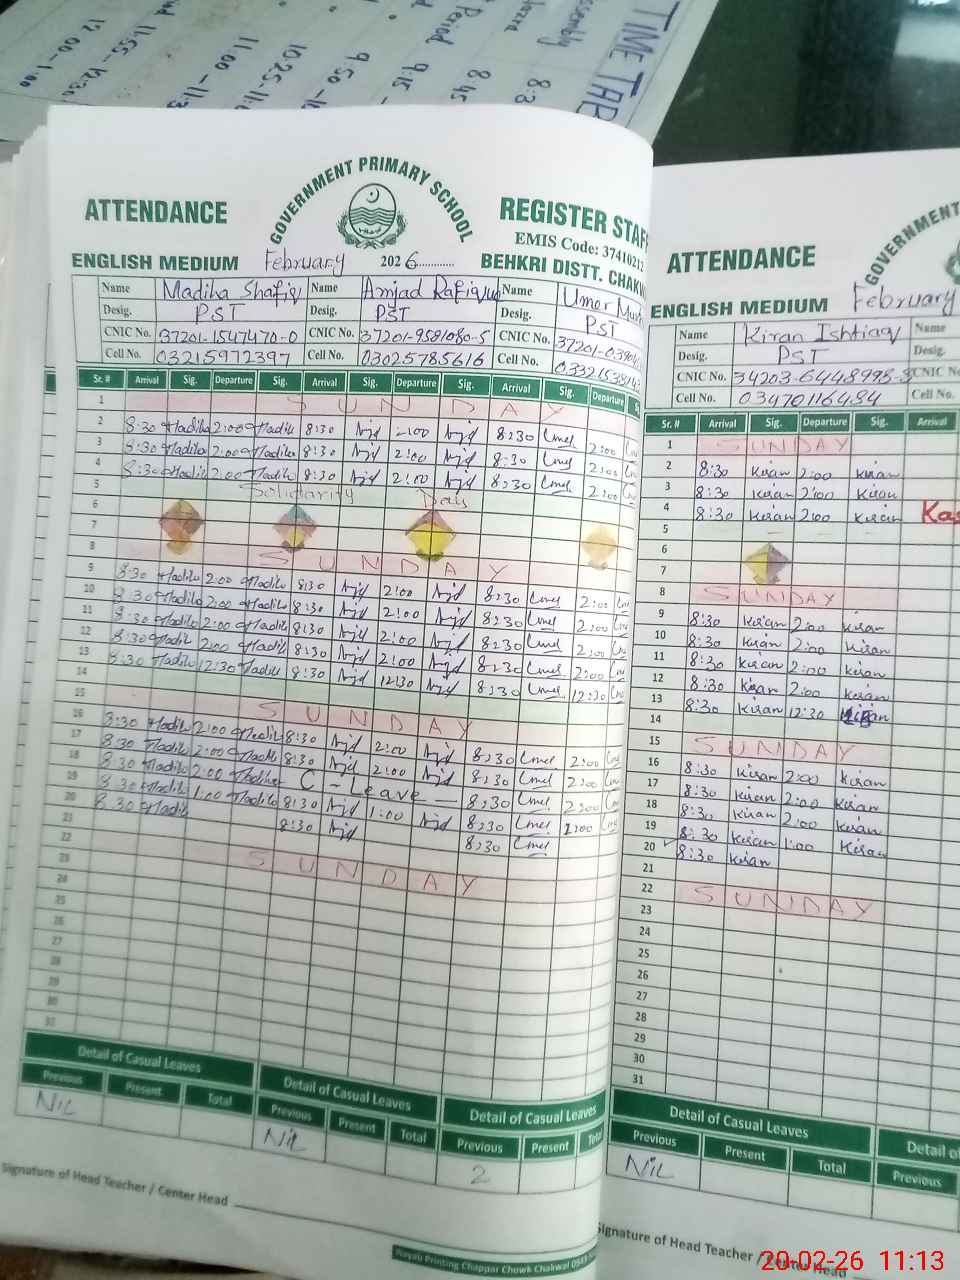 TIME TAB
8:45
9:15 -
9:50 -
10:25 - 11:
11:00 - 11:3
11:55 - 12:30
12:00 - 1:00
Period
GOVERNMENT PRIMARY SCHOOL
ATTENDANCE
REGISTER STAFF
EMIS Code: 37410212
ENGLISH MEDIUM February 2026
BEHKRI DISTT. CHAKW
Name Madiha Shafiq Name Amjad Rafique Name Umer
Desig. PST Desig. PST Desig. PST
CNIC No. 37201-1547470-0 CNIC No. 37201-9581080-5 CNIC No.
Cell No. 03215972397 Cell No. 03025785616 Cell No.
Sr. # Arrival Sig. Departure Sig. Arrival Sig. Departure Sig. Arrival Sig. Departure
1 SUNDAY
2 8:30 Madiha 2:00 Madiha 8:30 2:00 8:30 2:00
3 8:30 Madiha 2:00 Madiha 8:30 2:00 8:30 2:00
4 8:30 Madiha 2:00 Madiha 8:30 2:00 8:30 2:00
5 Solidarity Day
6
7
8 SUNDAY
9 8:30 Madiha 2:00 Madiha 8:30 2:00 8:30 2:00
10 8:30 Madiha 2:00 Madiha 8:30 2:00 8:30 2:00
11 8:30 Madiha 2:00 Madiha 8:30 2:00 8:30 2:00
12 8:30 Madiha 2:00 Madiha 8:30 2:00 8:30 2:00
13 8:30 Madiha 12:30 Madiha 8:30 12:30 8:30 12:30
14
15 SUNDAY
16 8:30 Madiha 2:00 Madiha 8:30 2:00 8:30 2:00
17 8:30 Madiha 2:00 Madiha 8:30 2:00 8:30 2:00
18 8:30 Madiha 2:00 Madiha C - Leave - 8:30 2:00
19 8:30 Madiha 1:00 Madiha 8:30 1:00 8:30 1:00
20 8:30 Madiha 8:30 8:30
21
22 SUNDAY
23
24
25
26
27
28
29
30
31
Detail of Casual Leaves Detail of Casual Leaves Detail of Casual Leaves
Previous Present Total Previous Present Total Previous Present Total
NIL NIL 2
Signature of Head Teacher / Center Head
Nayab Printing Chappar Chowk Chakwal
GOVERNMENT
ATTENDANCE
ENGLISH MEDIUM February
Name Kiran Ishtiaq Name
Desig. PST Desig.
CNIC No. 34203-6448998-8 CNIC No.
Cell No. 03470116484 Cell No.
Sr. # Arrival Sig. Departure Sig. Arrival
1 SUNDAY
2 8:30 Kiran 2:00 Kiran
3 8:30 Kiran 2:00 Kiran
4 8:30 Kiran 2:00 Kiran Kas
5
6
7
8 SUNDAY
9 8:30 Kiran 2:00 Kiran
10 8:30 Kiran 2:00 Kiran
11 8:30 Kiran 2:00 Kiran
12 8:30 Kiran 2:00 Kiran
13 8:30 Kiran 12:30 Kiran
14
15 SUNDAY
16 8:30 Kiran 2:00 Kiran
17 8:30 Kiran 2:00 Kiran
18 8:30 Kiran 2:00 Kiran
19 8:30 Kiran 1:00 Kiran
20 8:30 Kiran
21
22 SUNDAY
23
24
25
26
27
28
29
30
31
Detail of Casual Leaves Detail of
Previous Present Total Previous
NIL
Signature of Head Teacher / Center Head
20-02-26 11:13